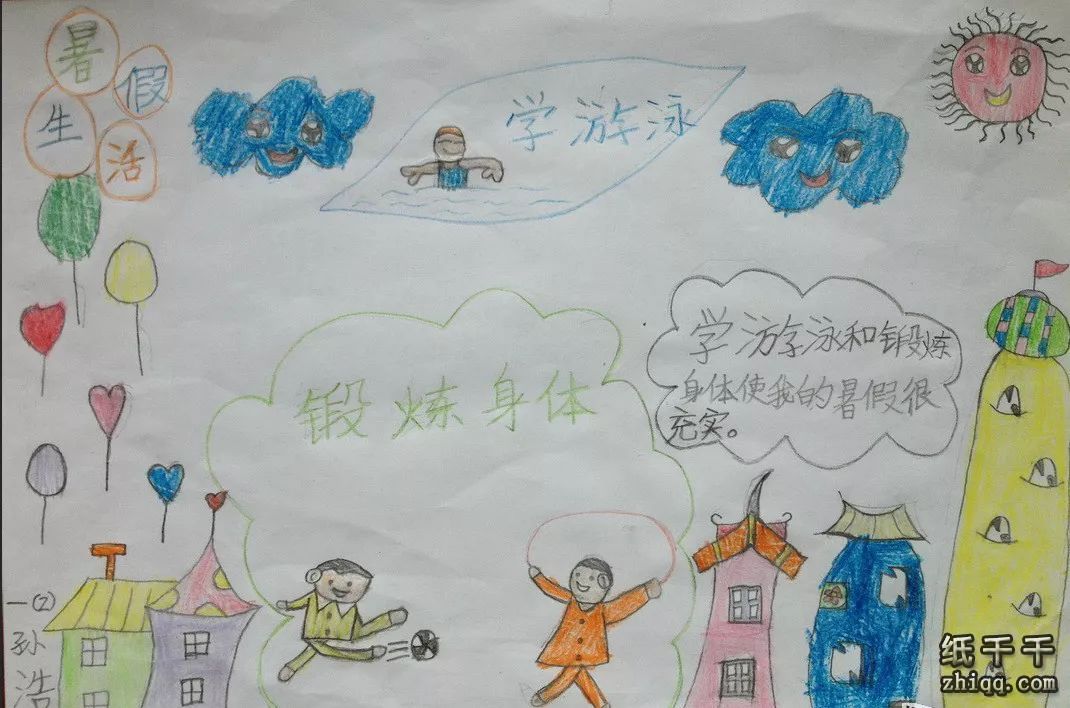 暑假
生活
学游泳
学游泳和锻炼
身体使我的暑假很
充实。
锻炼身体
一(2)
孙
浩
纸千千
zhiqq.com